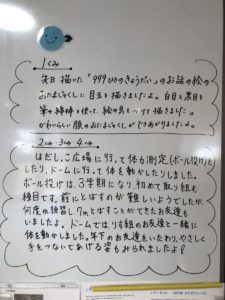 1くみ
先日描いた「999ひきのきょうだい」のお話の絵の
おたまじゃくしに目玉を描きましたよ。白目と黒目を
筆や綿棒を使って、絵の具をつけて描きました。
かわいらしい顔のおたまじゃくしができあがりましたよ。
2くみ・3くみ・4くみ
はだしっこ広場に行って体力測定(ボール投げ)を
したり、ドームに行って体を動かしたりしました。
ボール投げは、3学期になり、初めて取り組む
種目です。前にとばすのが難しいようでしたが、
何度か練習し7mとばすことができたお友達も
いましたよ。ドームでは、りす組のお友達と一緒に
体を動かしました。年下のお友達をいたわり、やさしく
手をつないであげる姿もみられましたよ!